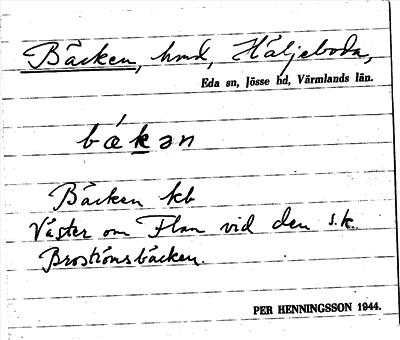 Bäcken, hmd, Häljeboda,
Eda sn, Jösse hd, Värmlands län.
bǽkən
Bäcken kb
Väster om Flan vid den s.k.
Broströmsbäcken.
PER HENNINGSSON 1944.